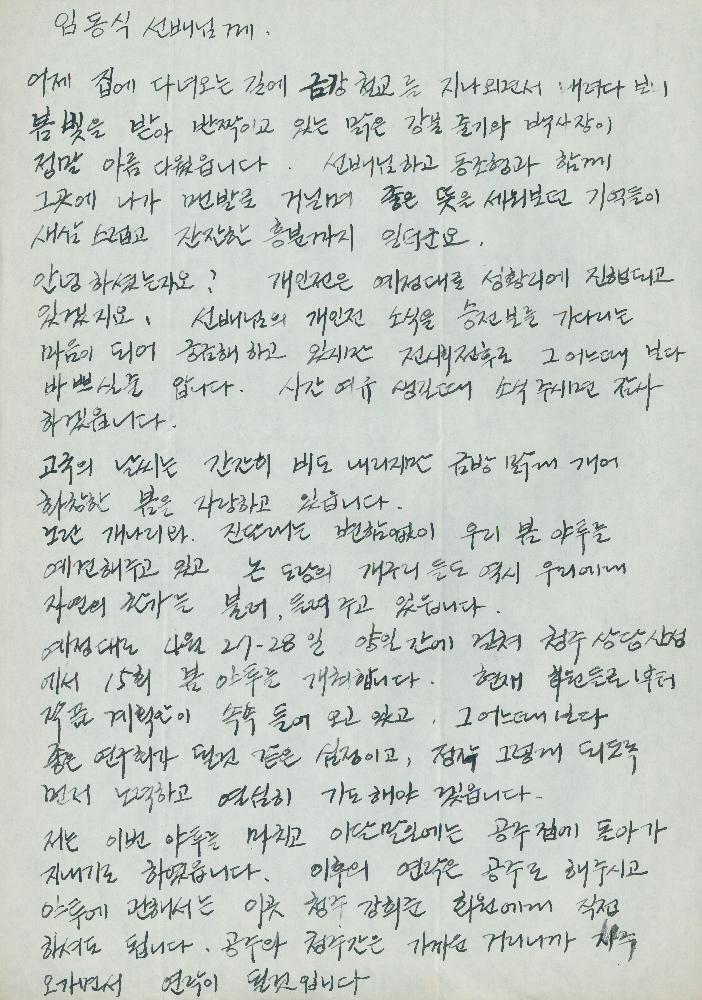 임동식 선배님께.
어제 집에 다녀오는 길에 금강 철교를 지나오면서 내려다 보니
봄빛을 받아 반짝이고 있는 맑은 강물 줄기와 백사장이
정말 아름다웠읍니다. 선배님하고 동조형과 함께
그곳에 나가 맨발로 거닐며 좋은 뜻을 세워보던 기억들이
새삼스럽고 잔잔한 흥분까지 일더군요.
안녕하셨는지요? 개인전은 예정대로 성황리에 진행되고
있겠지요. 선배님의 개인전 소식을 승전보를 기다리는
마음이 되어 궁금해 하고 있지만 전시회 전후로 그 어느때 보다
바쁘실줄 압니다. 시간 여유 생길때 소식 주시면 감사
하겠읍니다.
고국의 날씨는 간간히 비도 내리지만 금방 맑게 개어
화창한 봄을 자랑하고 있읍니다.
노란 개나리와. 진달래는 변함없이 우리 봄 야투를
예견해주고 있고 논 도랑의 개구리들도 역시 우리에게
자연의 찬가를 불러, 들려 주고 있읍니다.
예정대로 4월 27-28일 양일간에 걸쳐 청주 상당산성
에서 15회 봄 야투를 개최합니다. 현재 회원들로 부터
작품 계획안이 속속 들어 오고 있고, 그 어느때 보다
좋은 연구회가 될것 같은 심정이고, 정말 그렇게 되도록
먼저 노력하고 열심히 기도해야 겠읍니다.
저는 이번 야투를 마치고 이달말일에는 공주집에 돌아가
지내기로 하였읍니다. 이후의 연락은 공주로 해주시고
야투에 관해서는 이곳 청주 강희준 회원에게 직접
하셔도 됩니다. 공주와 청주간은 가까운 거리니까 자주
오가면서 연락이 될것입니다